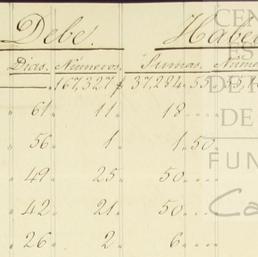 Debe. Habe
Dias. Numeros. Sumas. Nume
167,327 37,284..55
61. 11. 18....
56. 1. 1.50.
49. 25. 50....
42. 21. 50....
26. 2. 6....
CEN
ES
DE
DE
FUN
Ca